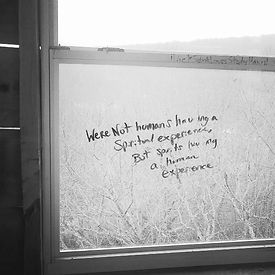 Were Not humans having a
Spiritual experience,
But spirits having
a human
experience